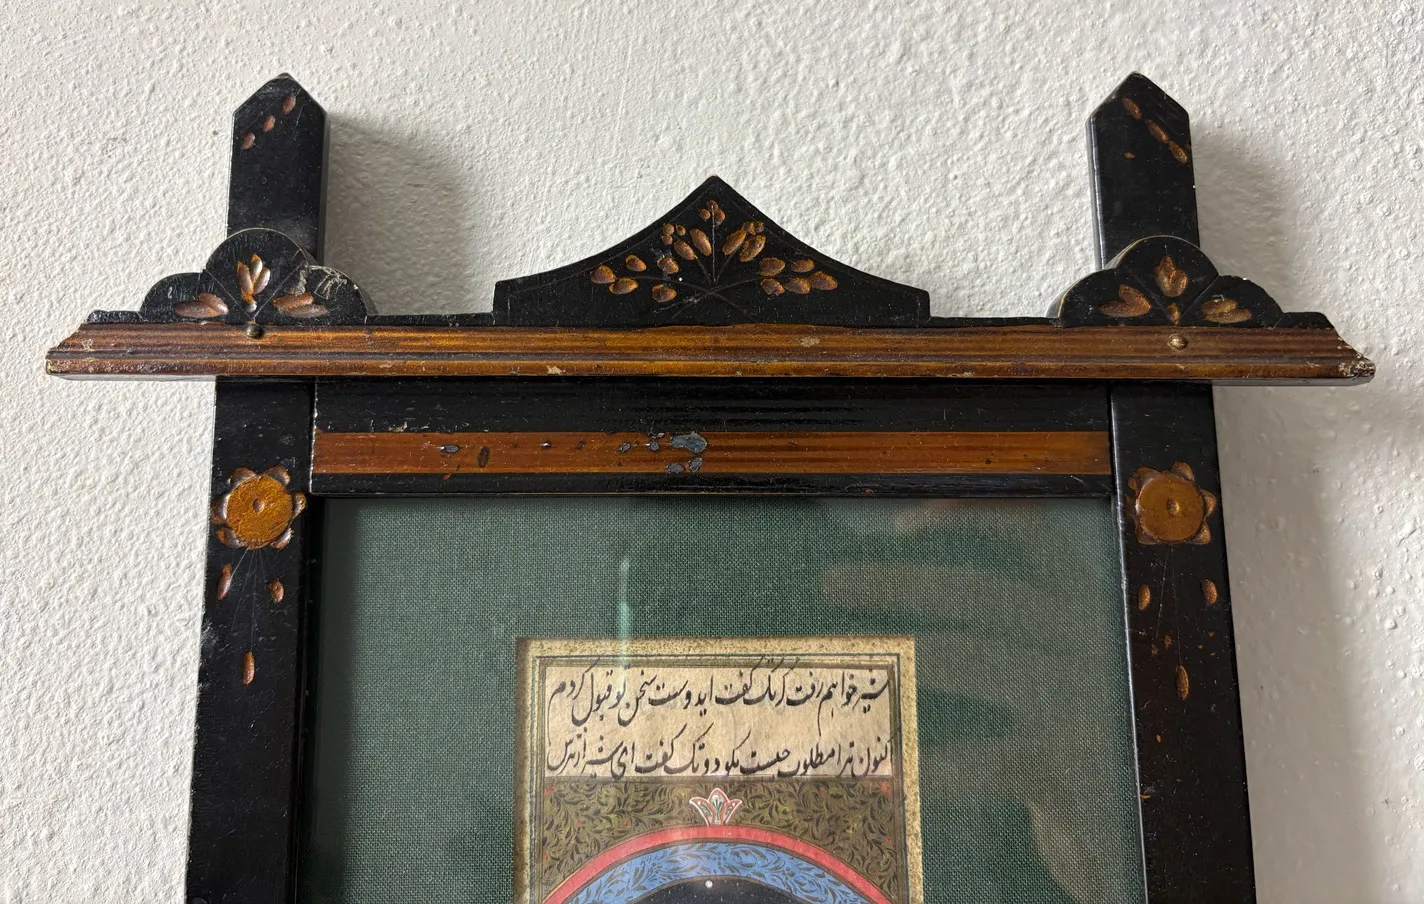 شیر خواهم رفت کرنک گفت ایدوست سخن تو قبول کردم
کنون ترا مطلوب چیست بگو دونک گفت ای شیر از ترس